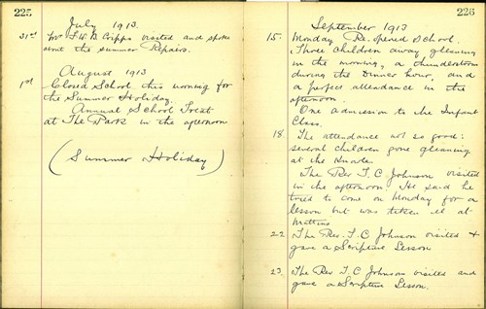 225
July 1913.
31st Mr F. W. B. Cripps visited and spoke
anent the summer Repairs.
August 1913
1st Closed School this morning for
the Summer Holiday.
Annual School Treat
at The Park in the afternoon
(Summer Holiday)
226
September 1913
15. Monday Re-opened School.
Three children away gleaning
in the morning, a thunderstorm
during the Dinner hour, and
a perfect attendance in the
afternoon.
One admission to the Infant
Class.
18. The attendance not so good:
several children gone gleaning
at the
The Rev T. C Johnson visited
in the afternoon. He said he
tried to come on Monday for a
lesson but was taken ill at
Mattins
22. The Rev. T. C Johnson visited +
gave a Scripture Lesson
23. The Rev T. C Johnson visited and
gave a Scripture Lesson.